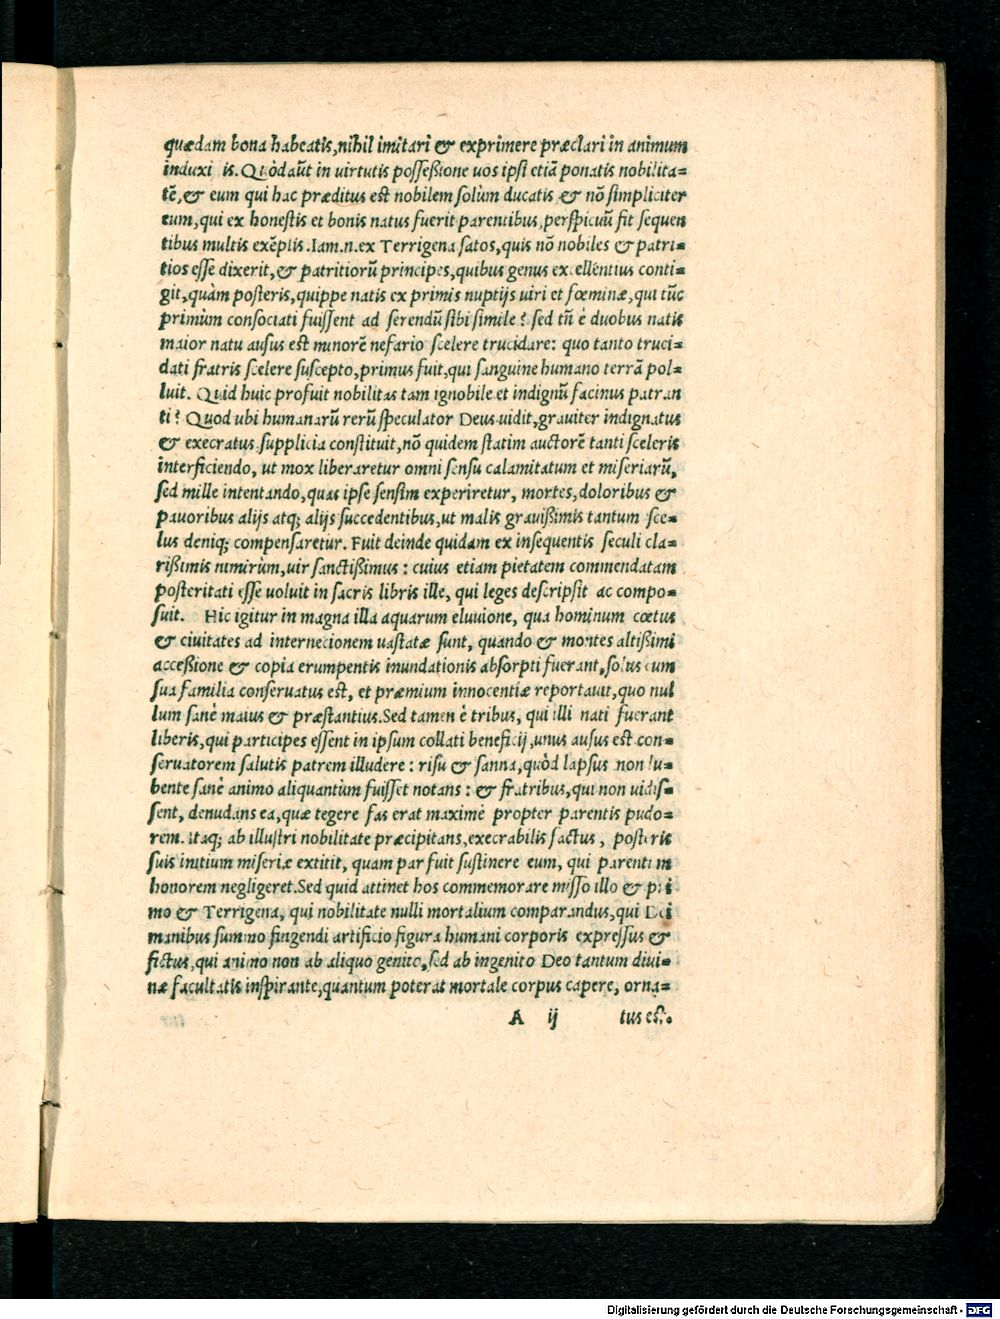 quædam bona habeatis,nihil imitari & exprimere præclari in animum
induxi is. Quòdaũt in uirtutis possessione uos ipsi etiã ponatis nobilita=
tẽ,& eum qui hac præditus est nobilem solùm ducatis & nõ simpliciter
eum,qui ex honestis et bonis natus fuerit parentibus,perspicuũ fit sequen
tibus multis exẽplis.Iam.n.ex Terrigena satos,quis nõ nobiles & patri=
tios esse dixerit,& patritiorũ principes,quibus genus excellentius conti=
git,quàm posteris,quippe natis ex primis nuptijs uiri et fœminæ,qui tũc
primùm consociati fuissent ad serendũ sibi simile? sed tñ è duobus natis
maior natu ausus est minorẽ nefario scelere trucidare: quo tanto truci=
dati fratris scelere suscepto,primus fuit,qui sanguine humano terrã pol=
luit. Quid huic profuit nobilitas tam ignobile et indignũ facinus patran
ti? Quod ubi humanarũ rerũ speculator Deus uidit,grauiter indignatus
& execratus supplicia constituit,nõ quidem statim auctorẽ tanti sceleris
interficiendo, ut mox liberaretur omni sensu calamitatum et miseriarũ,
sed mille intentando,quas ipse sensim experiretur, mortes,doloribus &
pauoribus alijs atq; alijs succedentibus,ut malis grauißimis tantum sce=
lus deniq; compensaretur. Fuit deinde quidam ex insequentis seculi cla=
rißimis nimirùm,uir sanctißimus: cuius etiam pietatem commendatam
posteritati esse uoluit in sacris libris ille, qui leges descripsit ac compo=
suit. Hic igitur in magna illa aquarum eluuione, qua hominum cœtus
& ciuitates ad internecionem uastatæ sunt, quando & montes altißimi
acceßione & copia erumpentis inundationis absorpti fuerant,solus cum
sua familia conseruatus est, et præmium innocentiæ reportauit,quo nul
lum sanè maius & præstantius.Sed tamen è tribus, qui illi nati fuerant
liberis,qui participes essent in ipsum collati beneficij,unus ausus est con=
seruatorem salutis patrem illudere: risu & sanna,quòd lapsus non lu=
bente sanè animo aliquantùm fuisset notans: & fratribus,qui non uidis=
sent, denudans ea,quæ tegere fas erat maximè propter parentis pudo=
rem. itaq; ab illustri nobilitate præcipitans,execrabilis factus, posteris
suis initium miseriæ extitit, quam par fuit sustinere eum, qui parentum
honorem negligeret.Sed quid attinet hos commemorare misso illo & pri
mo & Terrigena, qui nobilitate nulli mortalium comparandus,qui Dei
manibus summo fingendi artificio figura humani corporis expressus &
fictus,qui animo non ab aliquo genito,sed ab ingenito Deo tantum diui=
næ facultatis inspirante,quantum poterat mortale corpus capere, orna=
A ij tus est.
Digitalisierung gefördert durch die Deutsche Forschungsgemeinschaft - DFG